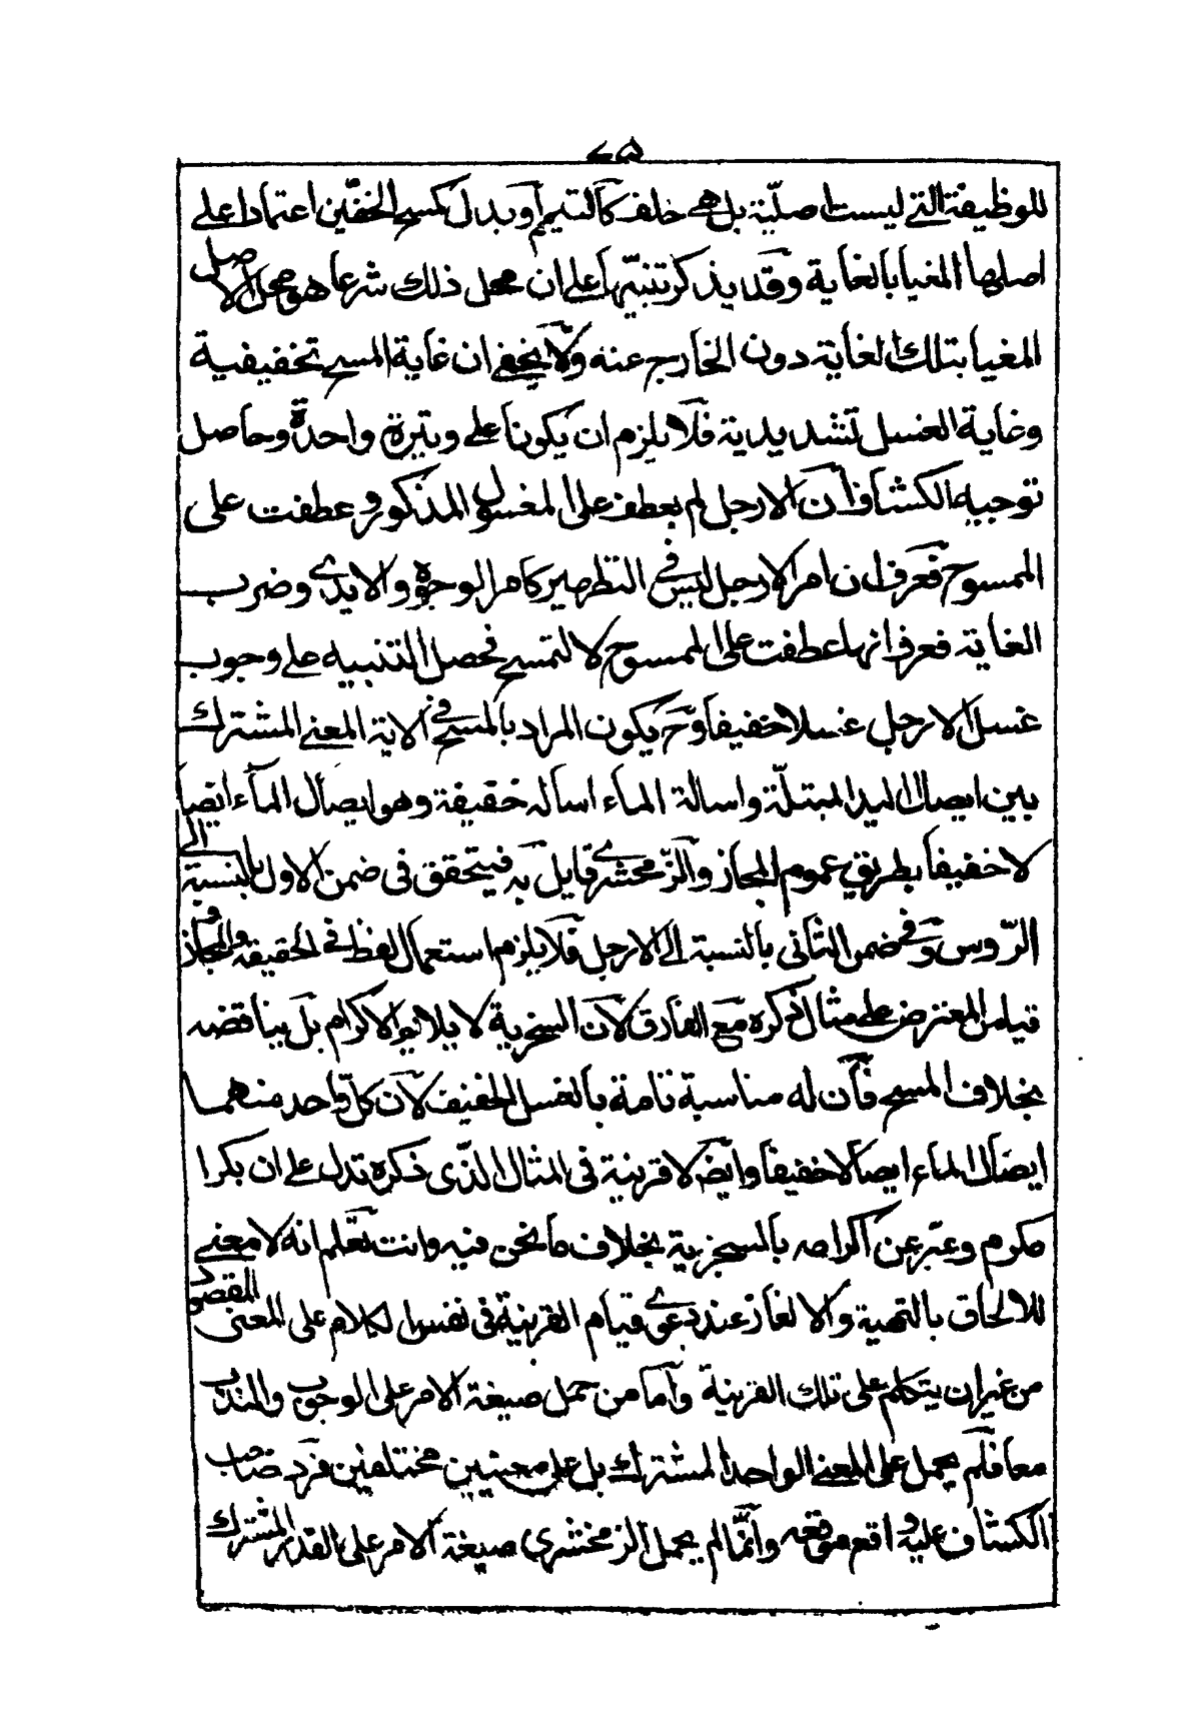 للوظيفة التي ليست اصليّة بل هي خلف كالتيمم أو بدل كمسح الخفّين اعتمادا على
اصلها المغيا بالغاية وقد يذكر تنبيها على ان محل ذلك شرعا هو محل الاصل
المغيا بتلك الغاية دون الخارج عنه ولا يخفى ان غاية المسح تخفيفية
وغاية الغسل تشديدية فلا يلزم ان يكونا على وتيرة واحدة وحاصل
توجيه الكشاف أن الارجل لم يعطف على المغسول المذكور وعطفت على
الممسوح فعرف ان امر الارجل ليس في التطهير كامر الوجوه والايدي وضرب
الغاية فعرف انها عطفت على الممسوح لا لتمسح فحصل التنبيه على وجوب
غسل الارجل غسلا خفيفا وح يكون المراد بالمسح في الاية المعنى المشترك
بين ايصال اليد المبتلّة واسالة الماء اسالة خفيفة وهو ايصال المآء ايصا
لا خفيفا بطريق عموم المجاز والزّمخشري قايل به فيتحقق فى ضمن الاول بالنسبة الى
الرّوس وفي ضمن الثانى بالنسبة الى الارجل فلا يلزم استعمال لفظ في الحقيقة والمجاز
قياس المعترض على مثال ذكره مع الفارق لأن السخرية لا يلايم الاكرام بل يناقضه
بخلاف المسح فأن له مناسبة تامة بالغسل الخفيف لأن كلّ واحد منهما
ايصال الماء ايصالا خفيفا وايضا لا قرينة فى المثال الذّى ذكره تدل على ان بكرا
مكرم وعبّر عن اكرامه بالسخرية بخلاف ما نحن فيه وانت تعلم انه لا معنى
للالحاق بالتعمية والالغاز عند دعوى قيام القرينة فى نفس الكلام على المعنى المقصود
من غير ان يتكلم على تلك القرينة وأما من حمل صيغة الامر على الوجوب والندب
معا فلم يحمل على المعنى الواحد المشترك بل على معنيين مختلفين فرد صاحب
الكشاف عليه واقع موقعه وانّما لم يحمل الزمخشري صيغة الامر على القدر المشترك